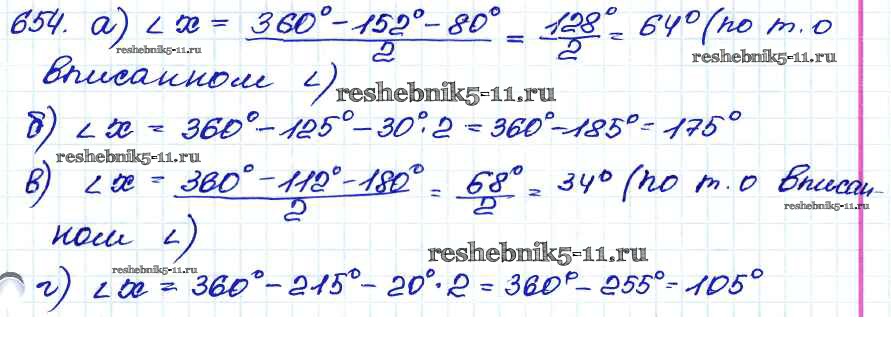 654. а) ∠x = (360° - 152° - 80°)/2 = 128°/2 = 64° (по т. о
reshebnik5-11.ru
reshebnik5-11.ru
вписанном ∠)
reshebnik5-11.ru
б) ∠x = 360° - 125° - 30°·2 = 360° - 185° = 175°
reshebnik5-11.ru
в) ∠x = (360° - 112° - 180°)/2 = 68°/2 = 34° (по т. о вписан-
reshebnik5-11.ru
ном ∠)
reshebnik5-11.ru
reshebnik5-11.ru
г) ∠x = 360° - 215° - 20°·2 = 360° - 255° = 105°